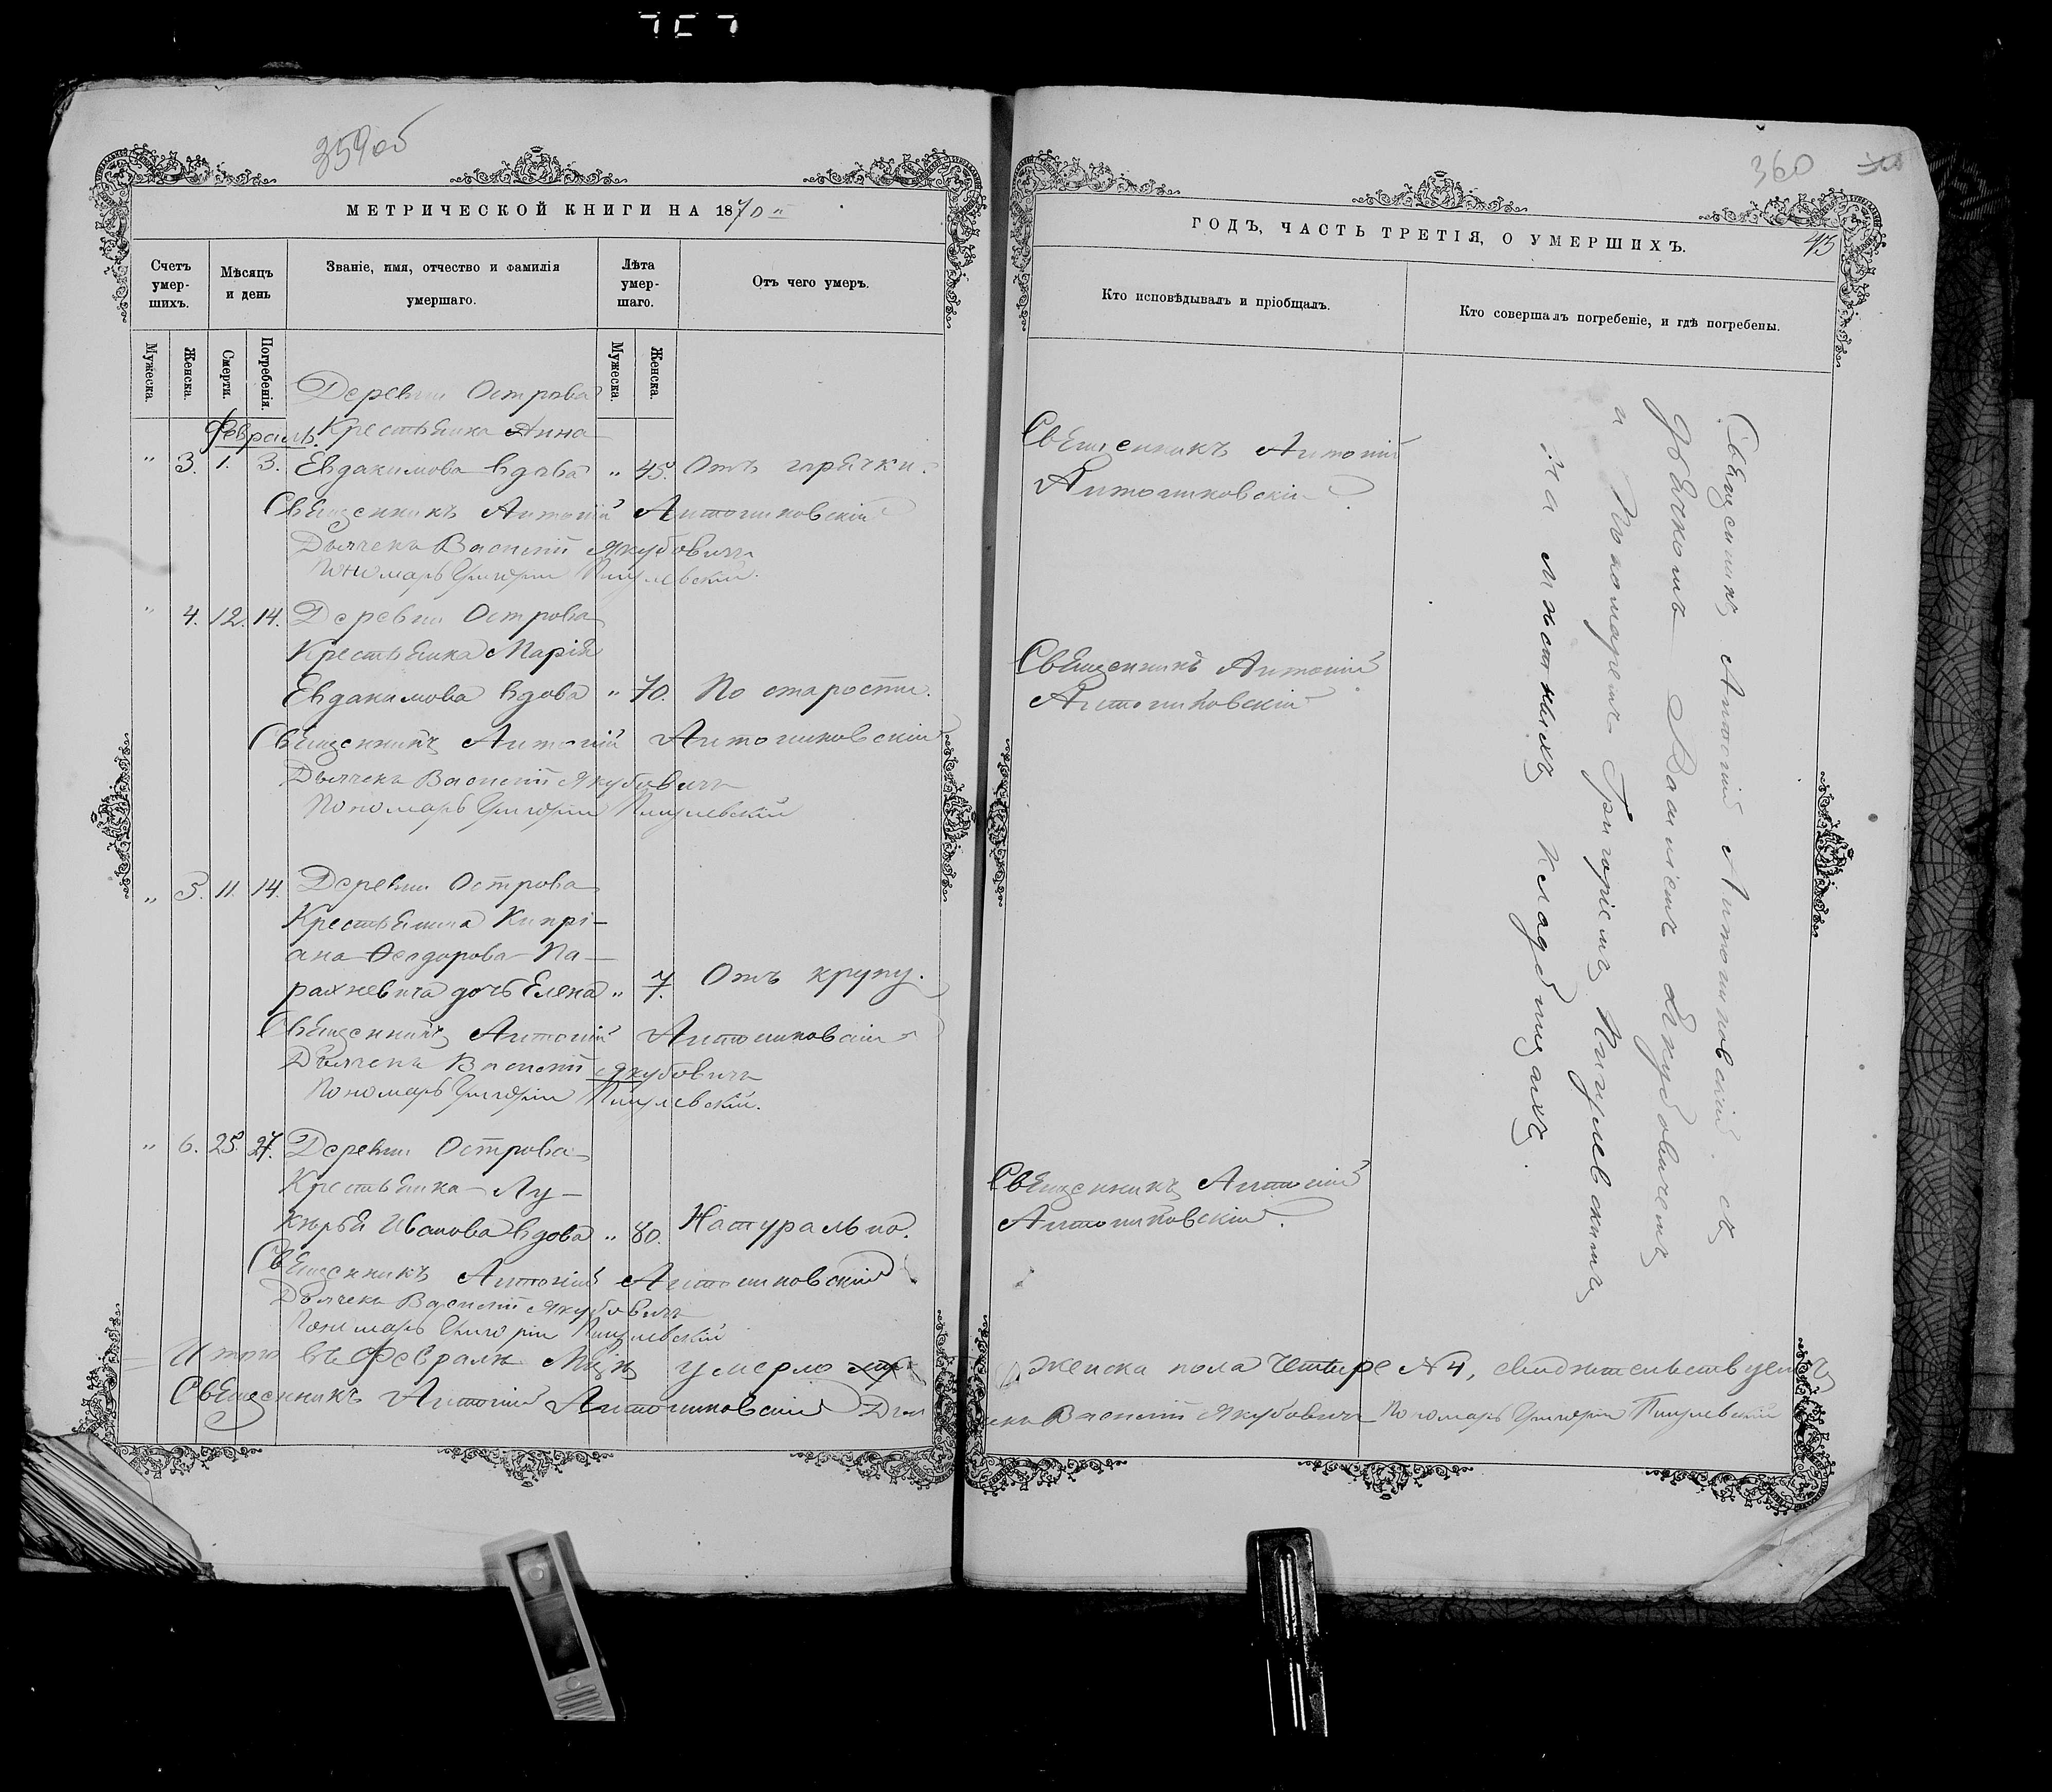 359об
МЕТРИЧЕСКОЙ КНИГИ НА 1870
Счетъ умер-шихъ.
Мѣсяцъ и день
Званіе, имя, отчество и фамилія умершаго.
Лѣта умер-шаго.
Отъ чего умеръ.
Мужеска.
Женска.
Смерти.
Погребенія.
Мужеска.
Женска.
Деревни Острова
Февраль. Крестьянка Анна
" 3. 1. 3. Евдакимова вдова " 45. Отъ горячки.
Священникъ Антоній Антошковскій
Дьячекъ Василій Якубовичъ
Пономарь Григорій Пигулевскій.
" 4. 12. 14. Деревни Острова
Крестьянка Марія
Евдакимова вдова " 70. По старости.
Священникъ Антоній Антошковскій
Дьячекъ Василій Якубовичъ
Пономарь Григорій Пигулевскій
" 5. 11. 14. Деревни Острова
Крестьянина Кипрі-
ана Ѳеодорова Па-
рахневича дочь Елена " 7. Отъ крупу.
Священникъ Антоній Антошковскій
Дьячекъ Василій Якубовичъ
Пономарь Григорій Пигулевскій.
" 6. 25. 27. Деревни Острова
Крестьянка Лу-
керья Иванова вдова " 80. Натурально.
Священникъ Антоній Антошковскій
Дьячекъ Василій Якубовичъ
Пономарь Григорій Пигулевскій
Итого въ Февралѣ Мцѣ умерло
Священникъ Антоній Антошковскій Дья
360
45
ГОДЪ, ЧАСТЬ ТРЕТІЯ, О УМЕРШИХЪ.
Кто исповѣдывалъ и пріобщалъ.
Кто совершалъ погребеніе, и гдѣ погребены.
Священникъ Антоній
Антошковскій
Священникъ Антоній
Антошковскій
Священникъ Антоній
Антошковскій.
Священникъ Антоній Антошковскій съ
дьячкомъ Василіемъ Якубовичемъ
и Пономаремъ Григоріемъ Пигулевскимъ
на мѣстныхъ кладбищахъ.
женска пола четыре № 4, свидѣтельствуемъ
чекъ Василій Якубовичъ Пономарь Григорій Пигулевскій